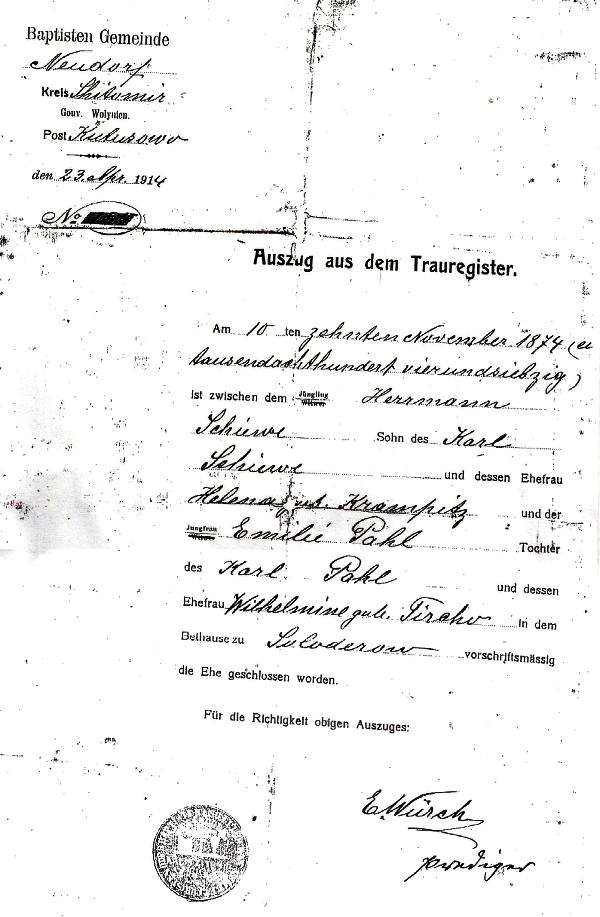 Baptisten Gemeinde
Neudorf
Kreis Shitomir
Gouv. Wolynien.
Post Kuturowo
den 23. Apr. 1914
No
Auszug aus dem Trauregister.
Am 10 ten zehnten November 1874 (ei
tausendachthundert vierundsiebzig)
ist zwischen dem Jüngling Witwer Herrmann
Schiewe Sohn des Karl
Schiewe und dessen Ehefrau
Helena geb. Krampitz und der
Jungfrau Witwe Emilie Pahl Tochter
des Karl Pahl und dessen
Ehefrau Wilhelmine geb. Tircho in dem
Bethause zu Soloderow vorschriftsmässig
die Ehe geschlossen worden.
Für die Richtigkeit obigen Auszuges:
E. Würch
Prediger